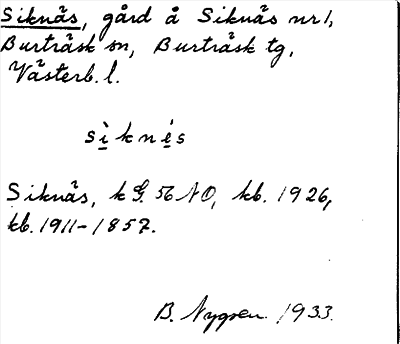 Siknäs, gård å Siknäs nr 1,
Burträsk sn, Burträsk tg,
Västerb. l.
sìknés
Siknäs, k G. 56 NO, kb. 1926,
kb. 1911-1857.
B. Nygren 1933.